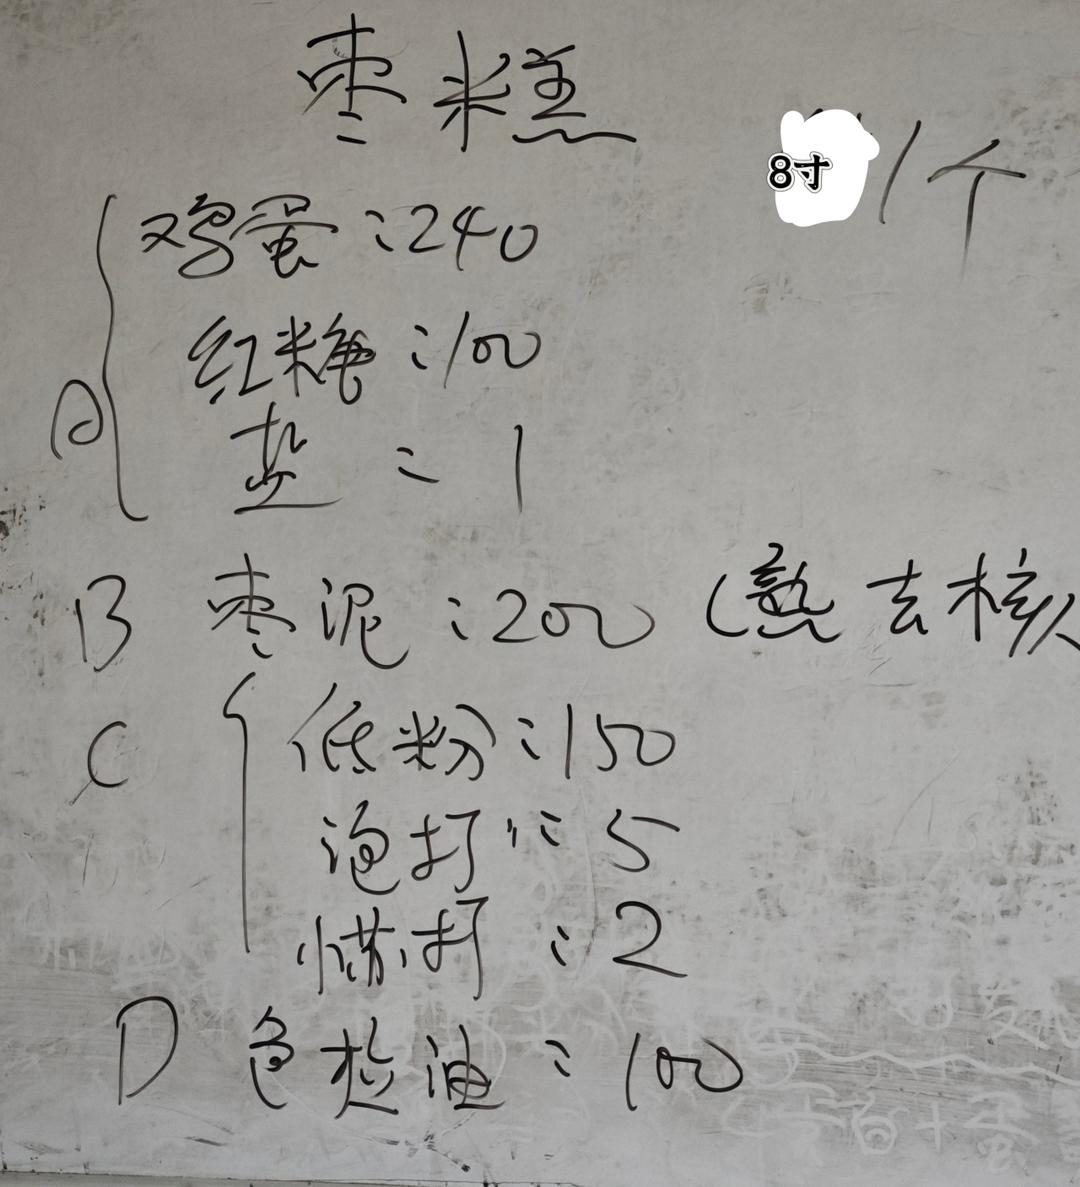 枣糕
8寸/个
A
鸡蛋:240
红糖:100
盐:1
B 枣泥:200(熟去核)
C
低粉:150
泡打:5
小苏打:2
D 色拉油:100